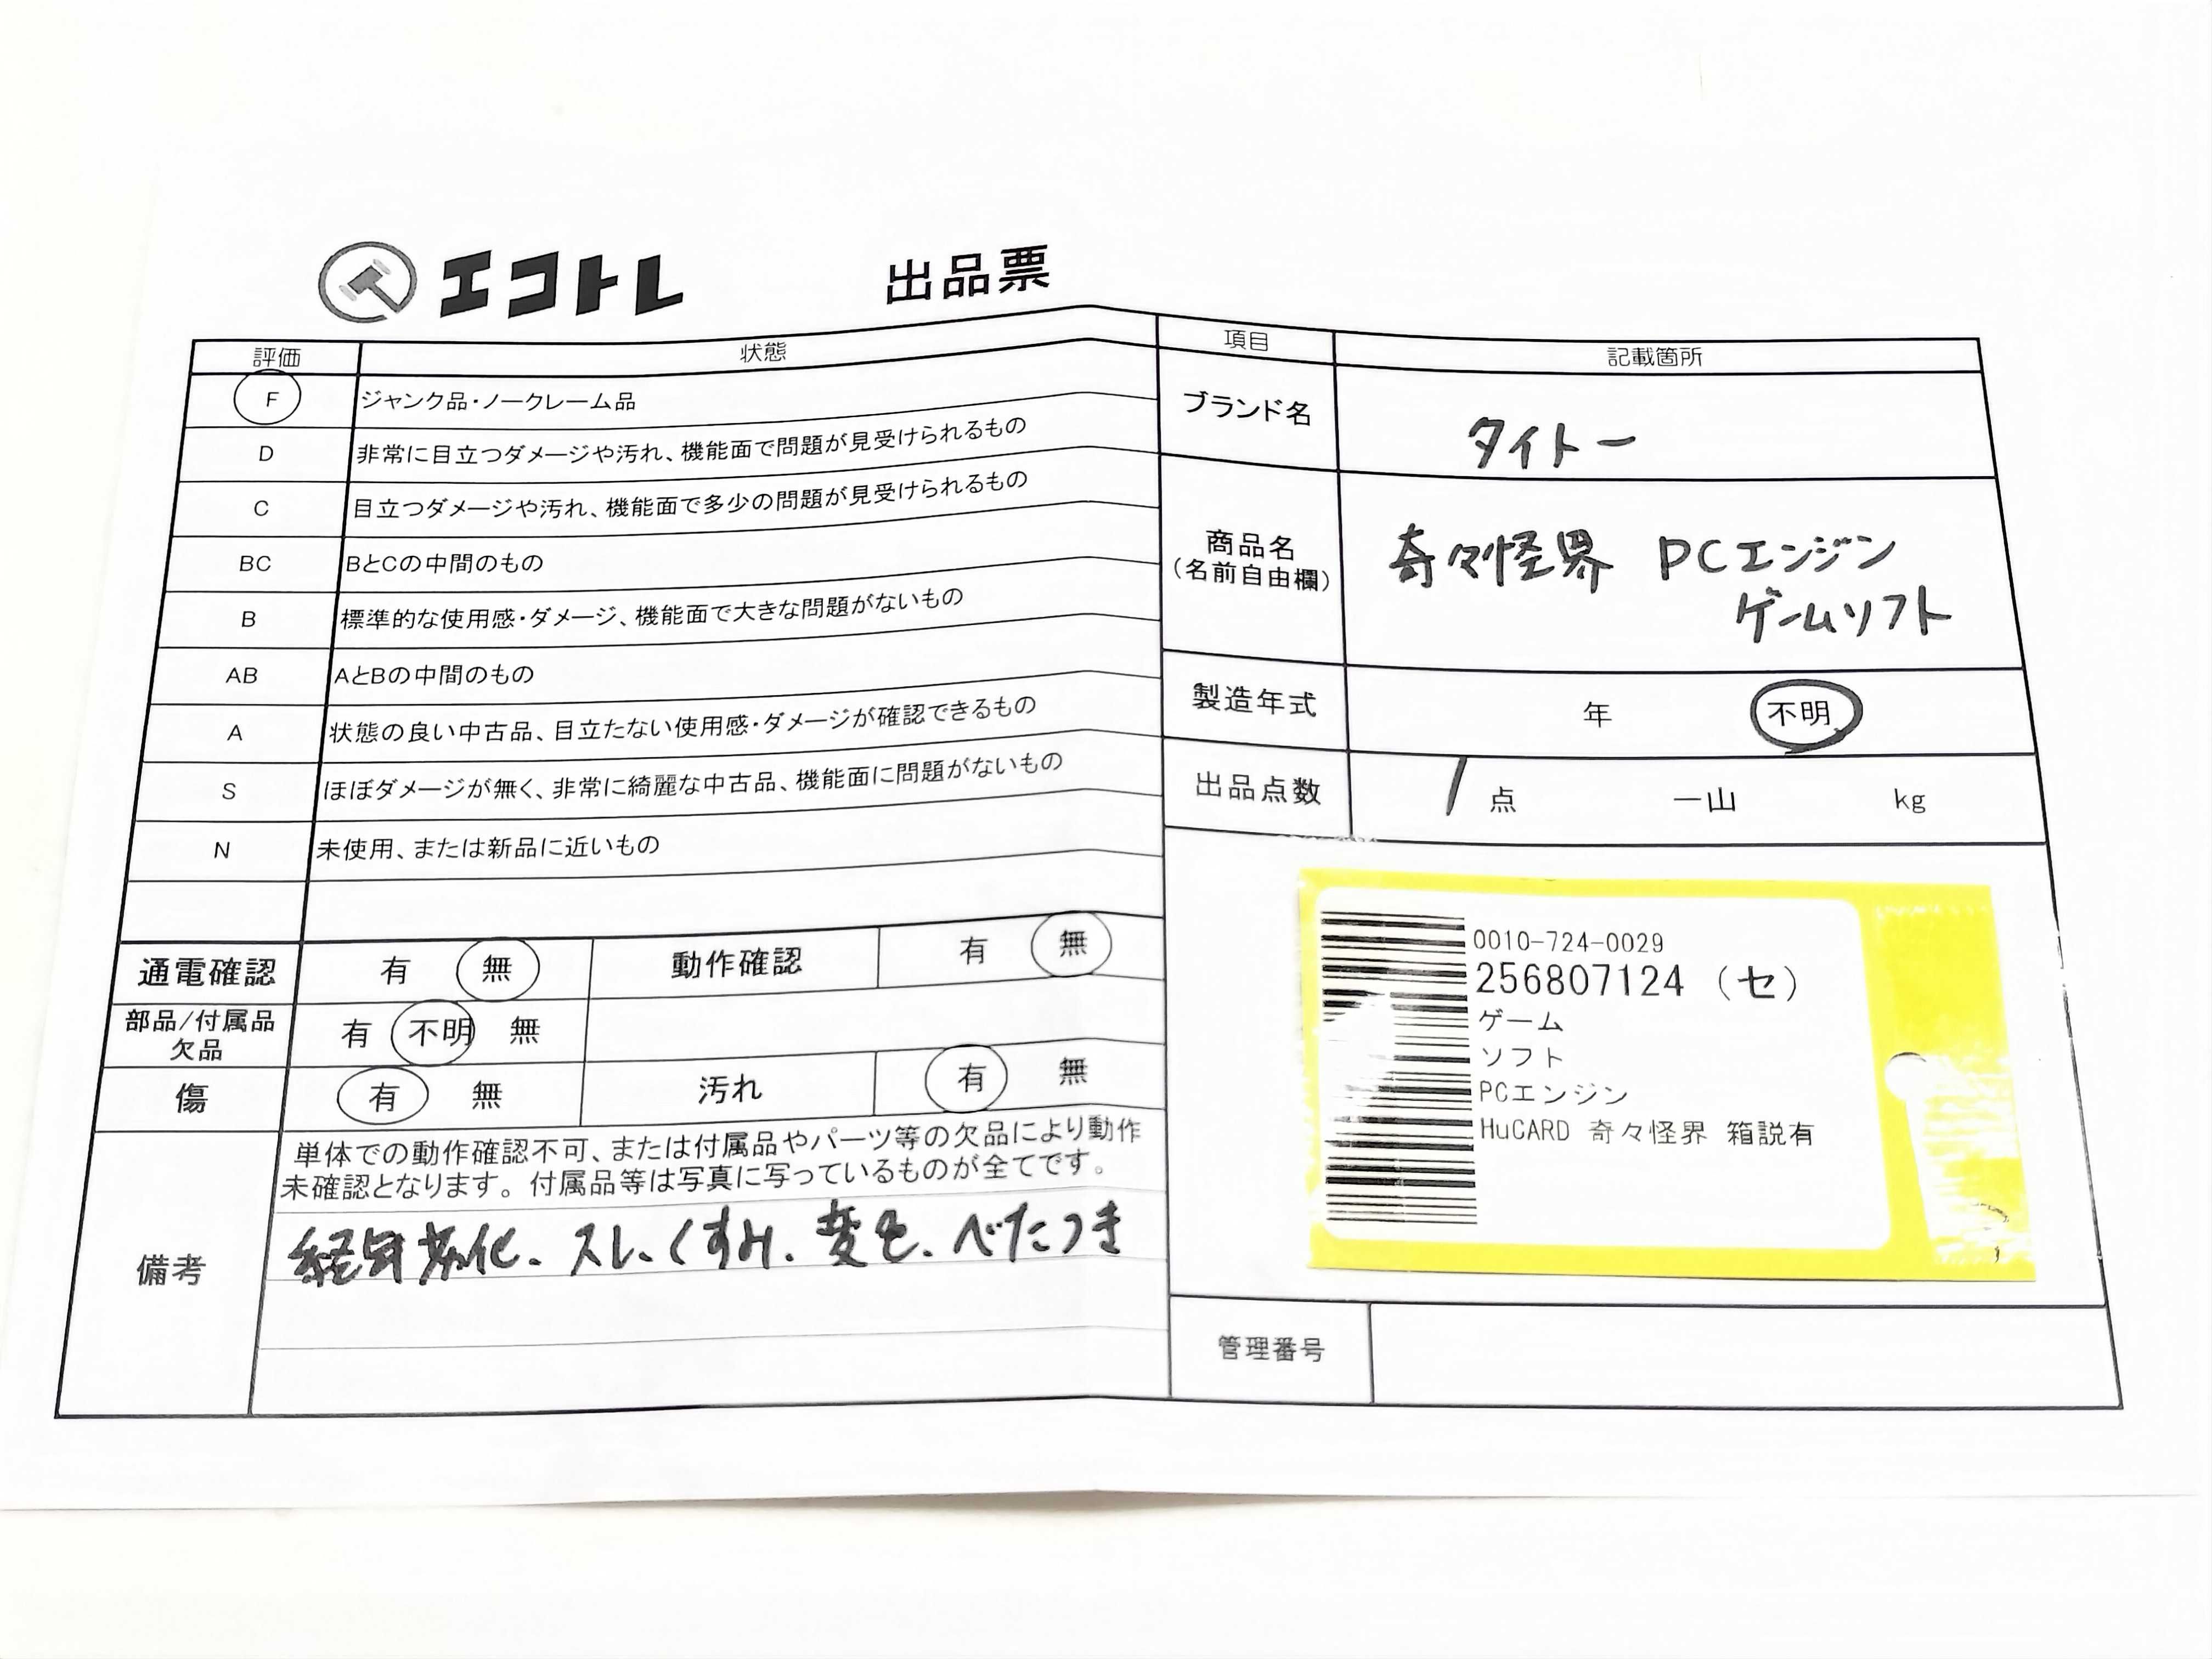 エコトレ
出品票
評価 状態
F ジャンク品・ノークレーム品
D 非常に目立つダメージや汚れ、機能面で問題が見受けられるもの
C 目立つダメージや汚れ、機能面で多少の問題が見受けられるもの
BC BとCの中間のもの
B 標準的な使用感・ダメージ、機能面で大きな問題がないもの
AB AとBの中間のもの
A 状態の良い中古品、目立たない使用感・ダメージが確認できるもの
S ほぼダメージが無く、非常に綺麗な中古品、機能面に問題がないもの
N 未使用、または新品に近いもの
通電確認 有 無 動作確認 有 無
部品/付属品
欠品
有 不明 無
傷 有 無 汚れ 有 無
備考
単体での動作確認不可、または付属品やパーツ等の欠品により動作
未確認となります。付属品等は写真に写っているものが全てです。
経年劣化、スレ、くすみ、変色、べたつき
項目 記載箇所
ブランド名 タイトー
商品名
(名前自由欄)
奇々怪界 PCエンジン
ゲームソフト
製造年式 年 不明
出品点数 1 点 一山 kg
0010-724-0029
256807124 (セ)
ゲーム
ソフト
PCエンジン
HuCARD 奇々怪界 箱説有
管理番号